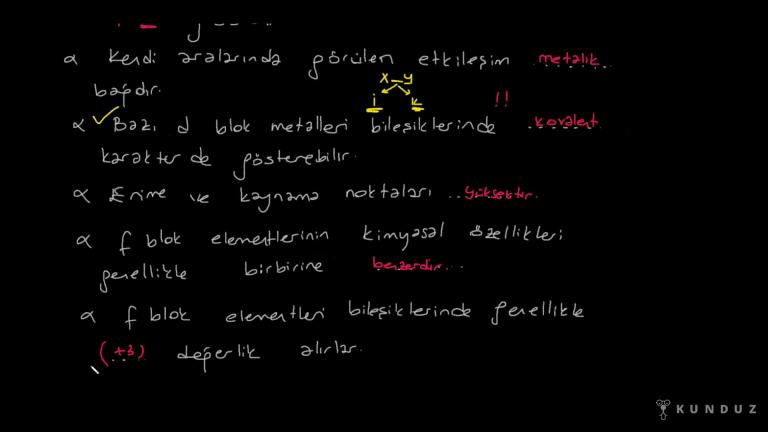 α Kendi aralarında görülen etkileşim metalik
bağdır.
x-y
i k
!!
α Bazı d blok metalleri bileşiklerinde kovalent
karakter de gösterebilir.
α Erime ve kaynama noktaları ..yüksektir.
α f blok elementlerinin kimyasal özellikleri
genellikle birbirine benzerdir...
α f blok elementleri bileşiklerinde genellikle
(+3) değerlik alırlar.
KUNDUZ